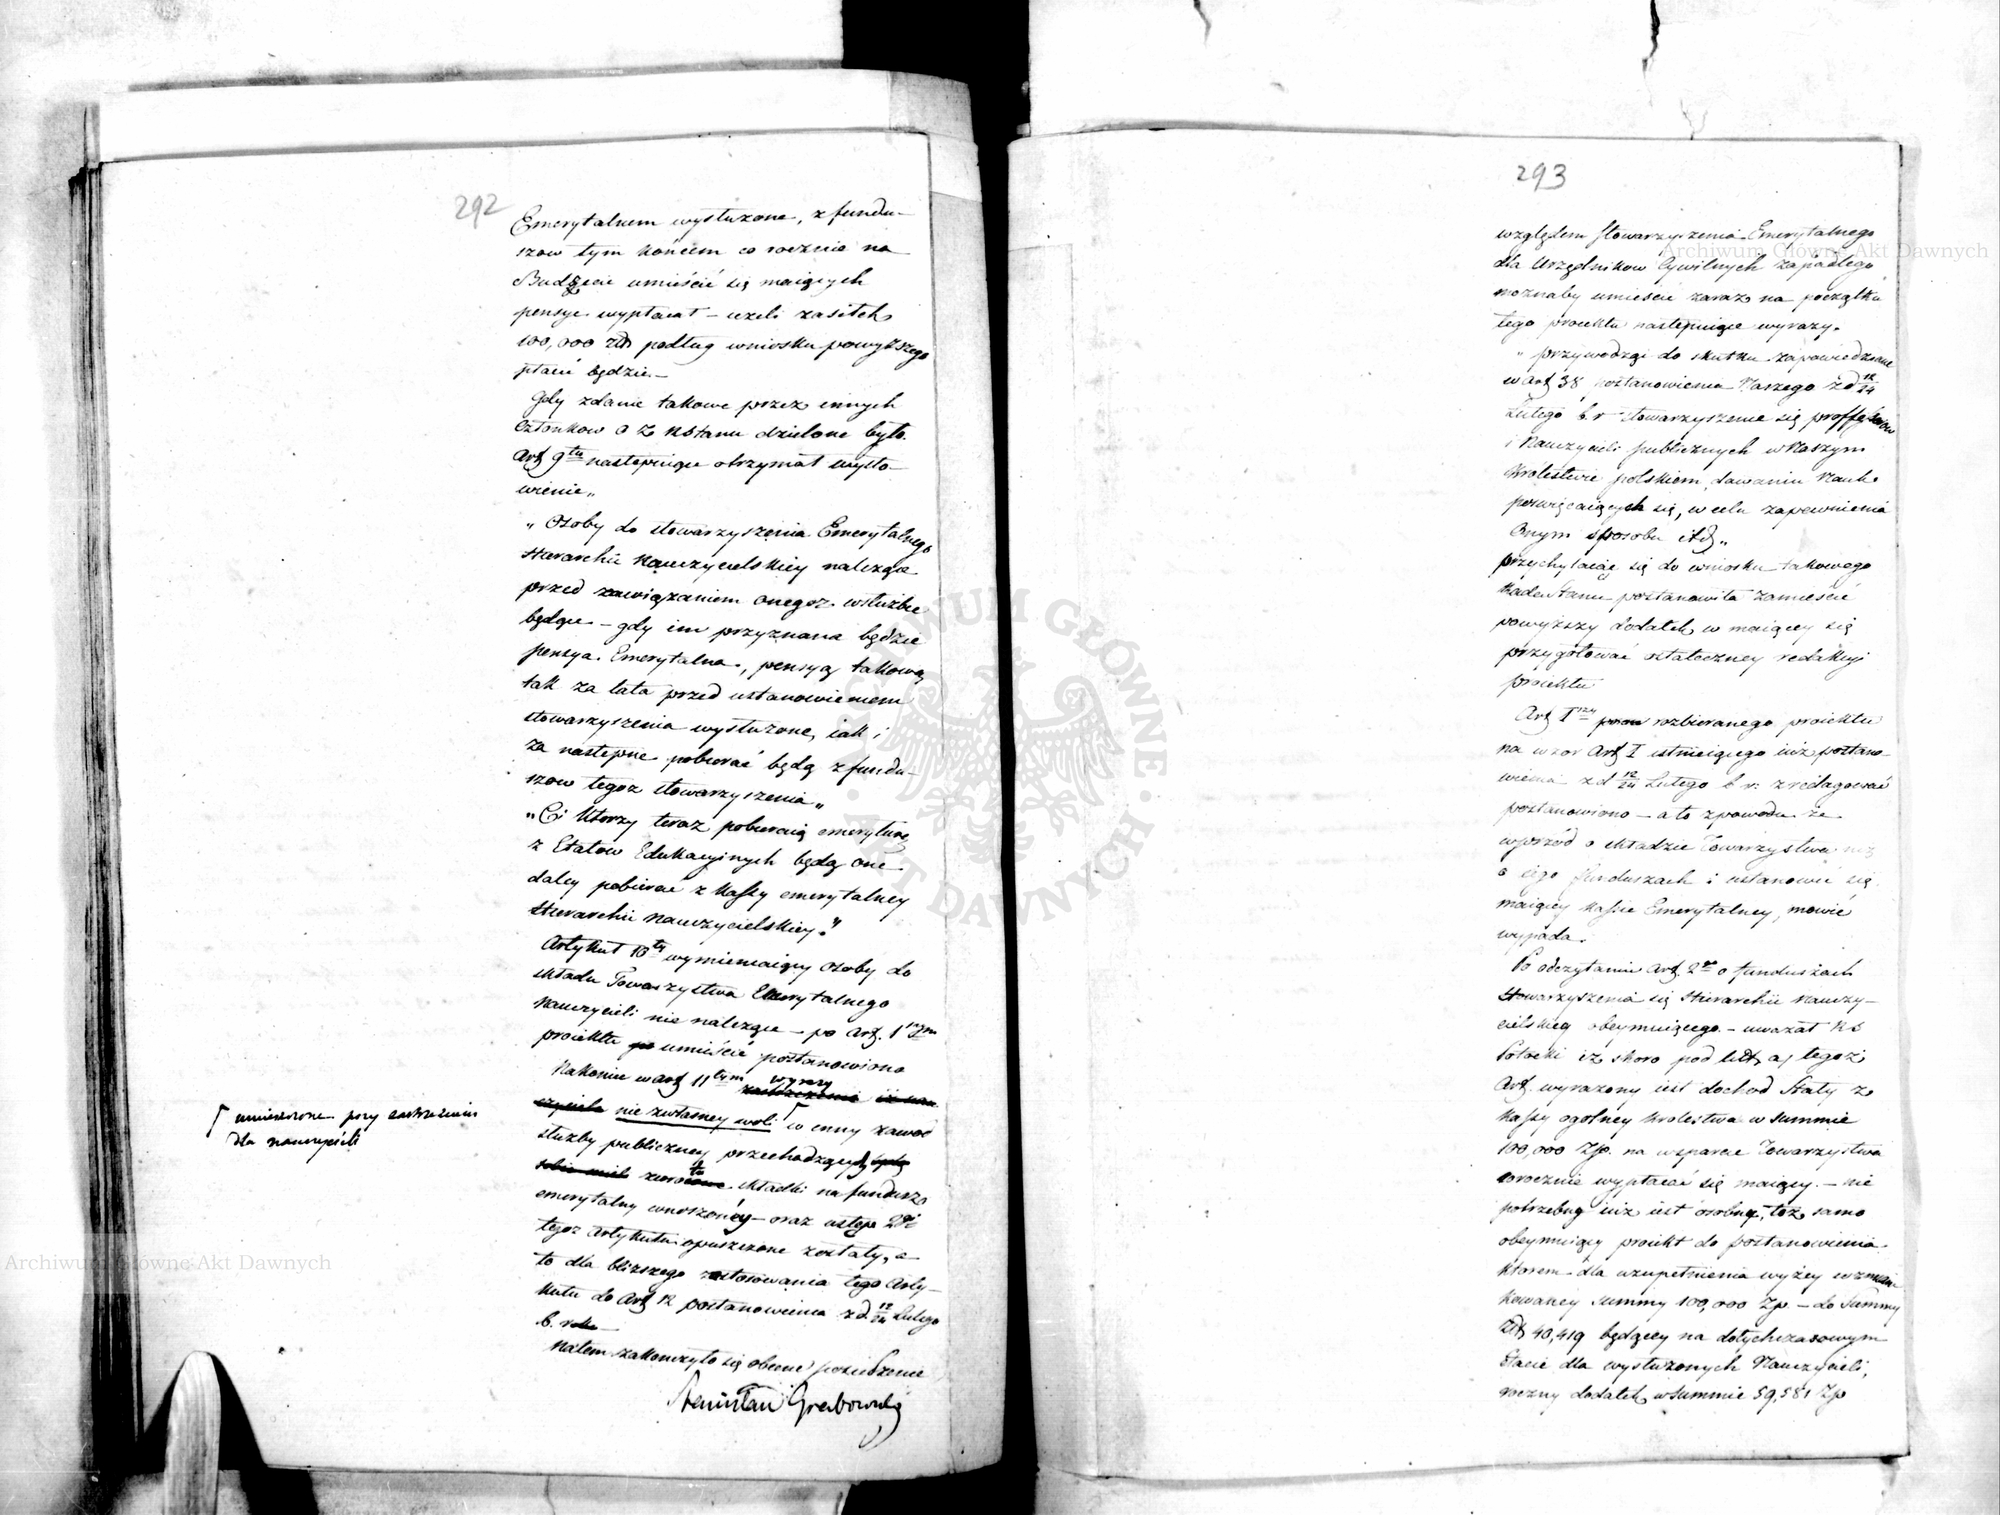 292
Emerytalnem wysłużone, z fundu-
szow tym końcem co rocznie na
Budżecie umieścić się maiących
pensye wypłacał – czeli zasiłek
100,000 złt podług wniosku powyższego
płacić będzie. –
Gdy zdanie takowe przez innych
Członkow O Z RStanu dzielone było.
Art 9ty następuiące otrzymał wysło-
wienie„
„ Osoby do stowarzyszenia Emerytalnego
Hierarchii Nauczycielskiey należące
przed zawiązaniem onegoż w służbie
będące – gdy im przyznana będzie
pensya Emerytalna, pensyą takową
tak za lata przed ustanowieniem
stowarzyszenia wysłużone, iak i
za następne pobierać będą z fundu-
szow tegoż stowarzyszenia„
„Ci którzy teraz pobieraią emeryturę
z Etatow Edukacyinych będą one
daley pobierać z kassy emerytalney
Hierarchii Nauczycielskiey."
Artykuł 10ty wymieniaiący osoby do
składu Towarzystwa Emerytalnego
Nauczycieli nie należące – po Art. 1szym
proiektu umieścić postanowiono
Nakoniec w Art 11tym wyrazy zastrzeżenia iż nau
czyciele nie z własney woli w inny zawod
służby publiczney przechodzący
sobie mieli zwro składki na fundusz
emerytalny wnoszoney – oraz ustęp 2gi
tegoż Artykułu opuszczone zostały, a
to dla bliższego zastosowania tego Arty-
kułu do Art 12 postanowienia z d. 12/24 Lutego
b. roku
Natem zakończyło się obecne posiedzenie
Stanisław Grabowski
umieszczone przy zastrzeżeniu
dla nauczycieli
293
względem Stowarzyszenia Emerytalnego
dla Urzędnikow Cywilnych zapadłego
możnaby umieścić zaraz na początku
tego proiektu następuiące wyrazy.
„ przywodząc do skutku zapowiedziane
w Art 38 postanowienia Naszego z d 12/24
Lutego b. r stowarzyszenie się professorow
i Nauczycieli publicznych w Naszym
Krolestwie polskiem, dawaniu Nauk
poswięcaiących się, w celu zapewnienia
Onym sposobu itd„
przychylaiąc się do wniosku takowego
Rada Stanu postanowiła zamieścić
powyższy dodatek w maiącey się
przygotować ostateczney redakcyi
proiektu
Art 1szy rozbieranego proiektu
na wzor Art I istnieiącego iuż postano-
wienia z d 12/24 Lutego b r: zredagować
postanowiono – a to z powodu że
wprzód o składzie Towarzystwa niż
o iego funduszach i ustanowić się
maiącey kassie Emerytalney, mowić
wypada.
Po odczytaniu Art. 2go o funduszach
stowarzyszenia się Hierarchii Nauczy-
cielskiey obeymuiącego – uważał RS
Potocki iż skoro pod litt a, tegoż
Art. wyrażony iest dochod Stały z
kassy ogólney krolestwa w summie
100,000 Zp. na wsparcie Towarzystwa
corocznie wypłacać się maiący. – nie
potrzebny iuż iest osobny, toż samo
obeymuiący proiekt do postanowienia.
Ktorem dla uzupełnienia wyżey wzmian
kowaney summy 100,000 Zp. – do Summy
Złt 40,419 będącey na dotychczasowym
Etacie dla wysłużonych Nauczycieli,
roczny dodatek w Summie 59,581 Zp
Archiwum Główne Akt Dawnych
Archiwum Główne Akt Dawnych
ARCHIWUM GŁÓWNE AKT DAWNYCH